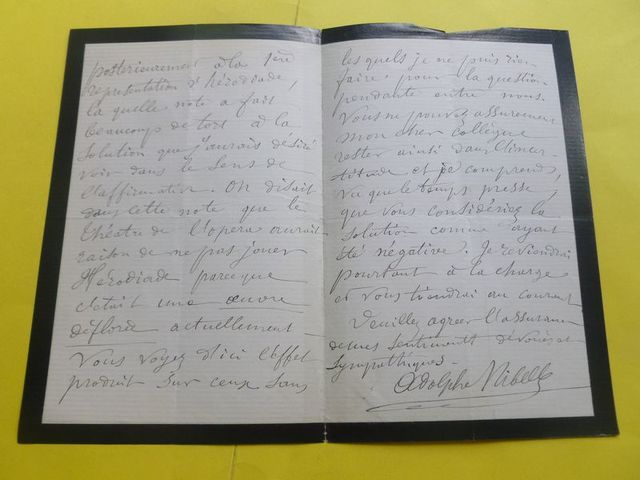 postérieurement à la 1ère
représentation d'hérodiade,
la quelle note a fait
beaucoups de tort à la
solution que j'aurais désiré
voir dans le sens de
l'affirmative. On disait
dans cette note que le
théatre de l'opera aurait
raison de ne pas jouer
Hérodiade parceque
c'etait une œuvre
déflorée actuellement
Vous voyez d'ici l'effet
produit sur ceux sans
les quels je ne puis rien
faire pour la question
pendante entre nous.
Vous ne pouvez assurément
mon cher collègue
rester ainsi dans l'incer-
titude et je comprends,
vu que le temps presse,
que vous considériez la
solution comme ayant
été négative. Je reviendrai
pourtant à la charge
et vous tiendrai au courant
Veuillez agréer l'assurance
de mes sentiments dévoués et
sympathiques
Adolphe Nibelle